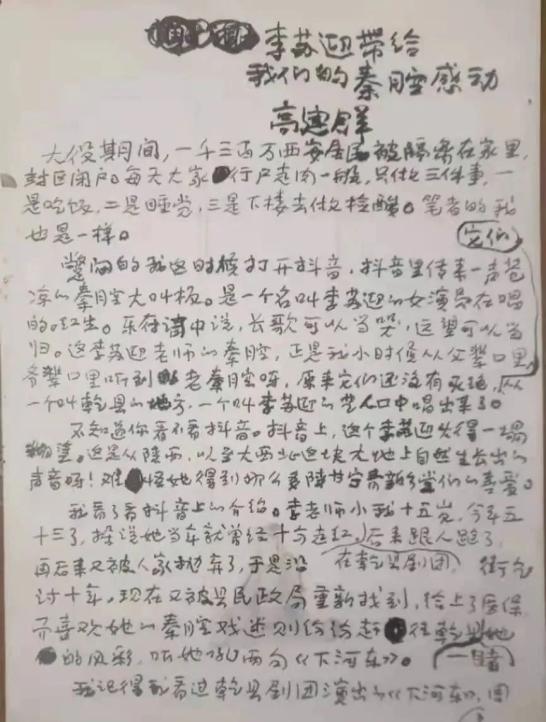 李苏迎带给
我们的秦腔感动
高建群
大役期间，一千三百万西安居民被隔离在家里，
封区闭户。每天大家行尸走肉一般，只做三件事，一
是吃饭，二是睡觉，三是下楼去做核酸。笔者的我
也是一样。
它们
憋闷的我这时候打开抖音，抖音里传来一声苍
凉的秦腔大叫板。是一个名叫李苏迎的女演员在唱
的。红生。乐府诗中说，长歌可以当哭，远望可以当
归。这李苏迎老师的秦腔，正是我小时候从父辈口里，
爷辈口里听到的老秦腔呀，原来它们还没有死绝，从
一个叫乾县的地方，一个叫李苏迎的艺人口中唱出来了。
不知道你看不看抖音。抖音上，这个李苏迎火得一塌
糊涂。这是从陕西，以至大西北这块大地上自然生长出的
声音呀！难怪她得到那么多陕甘宁青新乡党们的喜爱。
我看了看抖音上的介绍。李老师小我十五岁，今年五
十三了，据说她当年就曾经十分走红，后来跟人跑了，
再后来又被人家抛弃了，于是沿 在乾县剧团， 街乞
讨十年，现在又被县民政局重新找到，给上了医保
而喜欢她的秦腔戏迷则纷纷赶往乾县她
的风彩，听她吼两句《下河东》。 一睹
我记得我看过乾县剧团演出的《下河东》，